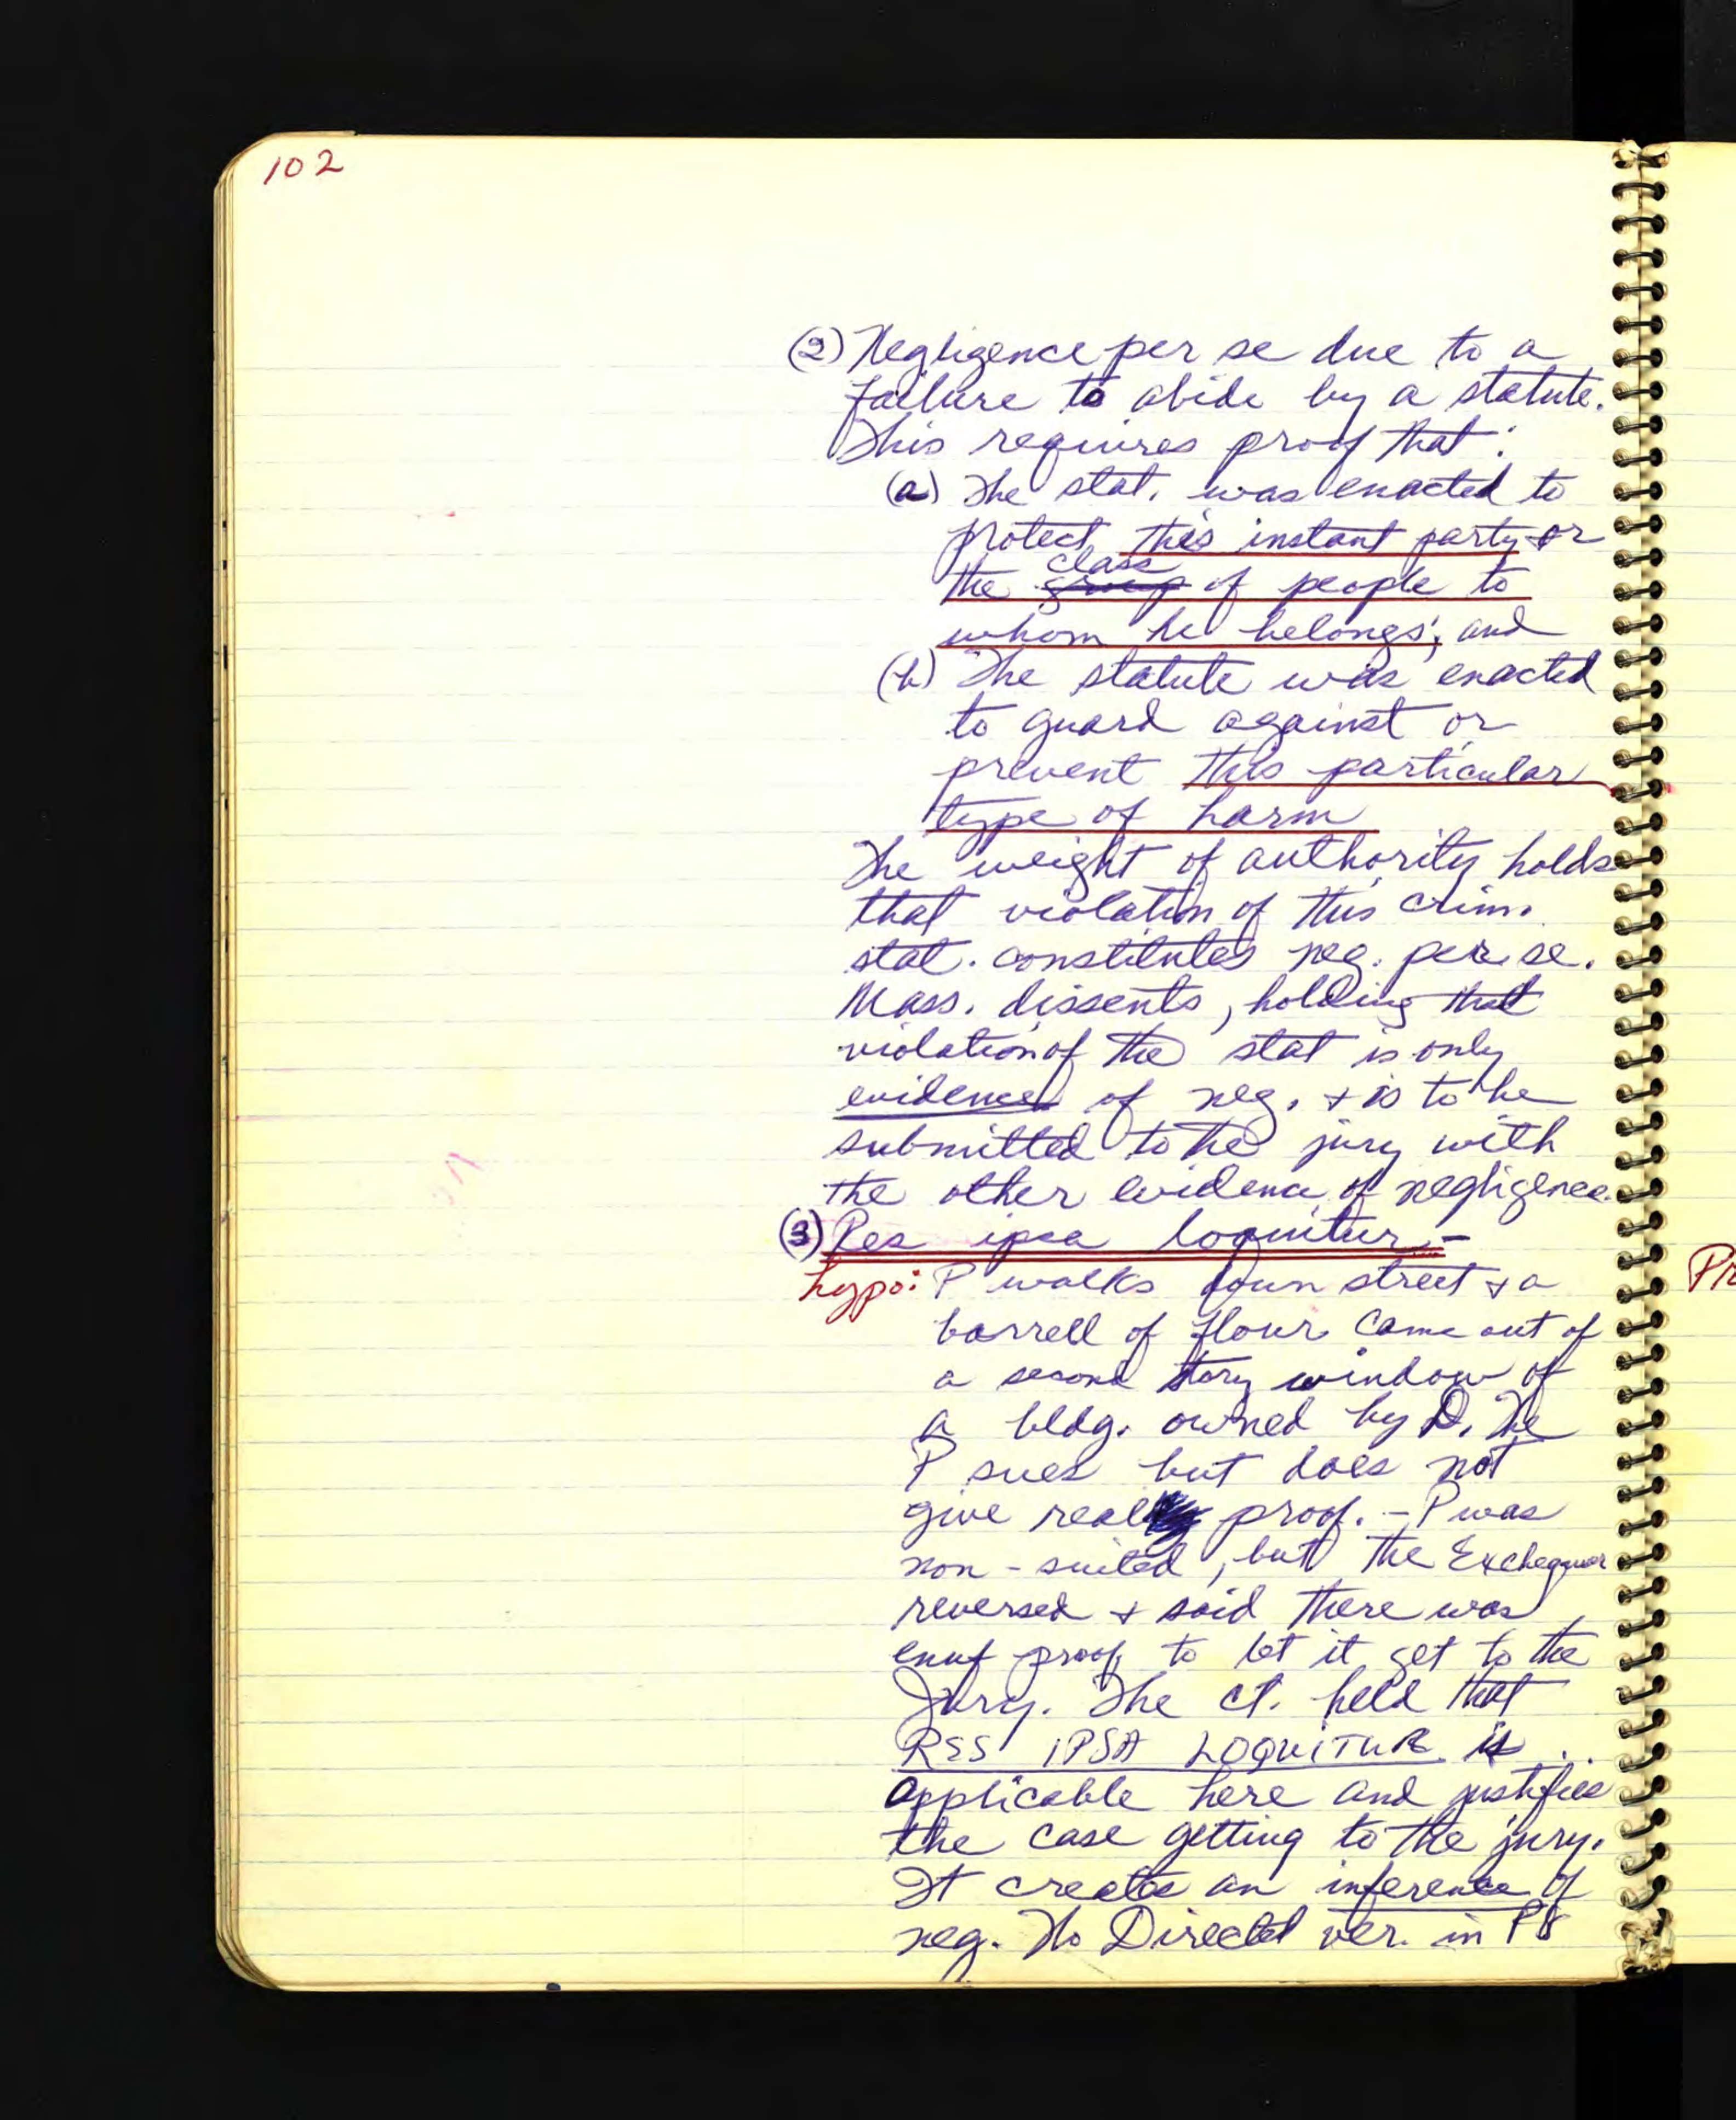 102
(2) Negligence per se due to a
failure to abide by a statute.
This requires proof that:
(a) The stat. was enacted to
protect this instant party or
class
the group of people to
whom he belongs; and
(b) The statute was enacted
to guard against or
prevent this particular
type of harm
The weight of authority holds
that violation of this crim.
stat. constitutes neg. per se.
Mass. dissents, holding that
violation of the stat is only
evidence of neg. & is to be
submitted to the jury with
the other evidence of negligence.
(3) Res ipsa loquitur -
hypo: P walks down street & a
barrell of flour came out of
a second story window of
a bldg. owned by D. The
P sues but does not
give real proof. - P was
non-suited, but the Exchequer
reversed & said there was
enuf proof to let it get to the
Jury. The ct. held that
RES IPSA LOQUITUR is
applicable here and justifies
the case getting to the jury.
It creates an inference of
neg. No Directed ver. in P's